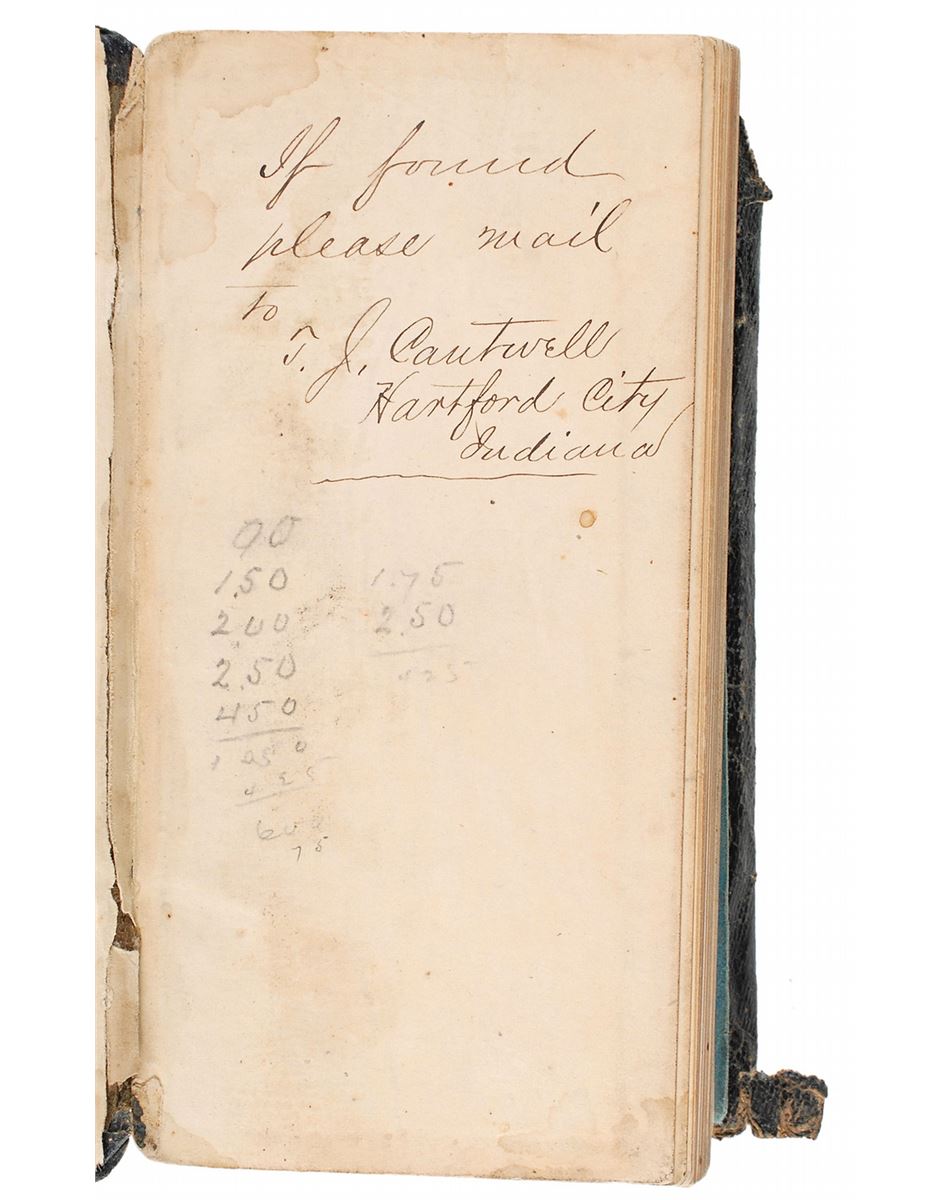 If found
please mail
to
T. J. Cantwell
Hartford City
Indiana
00
1.50
2.00
2.50
450
1 050
425
1.75
2.50
425